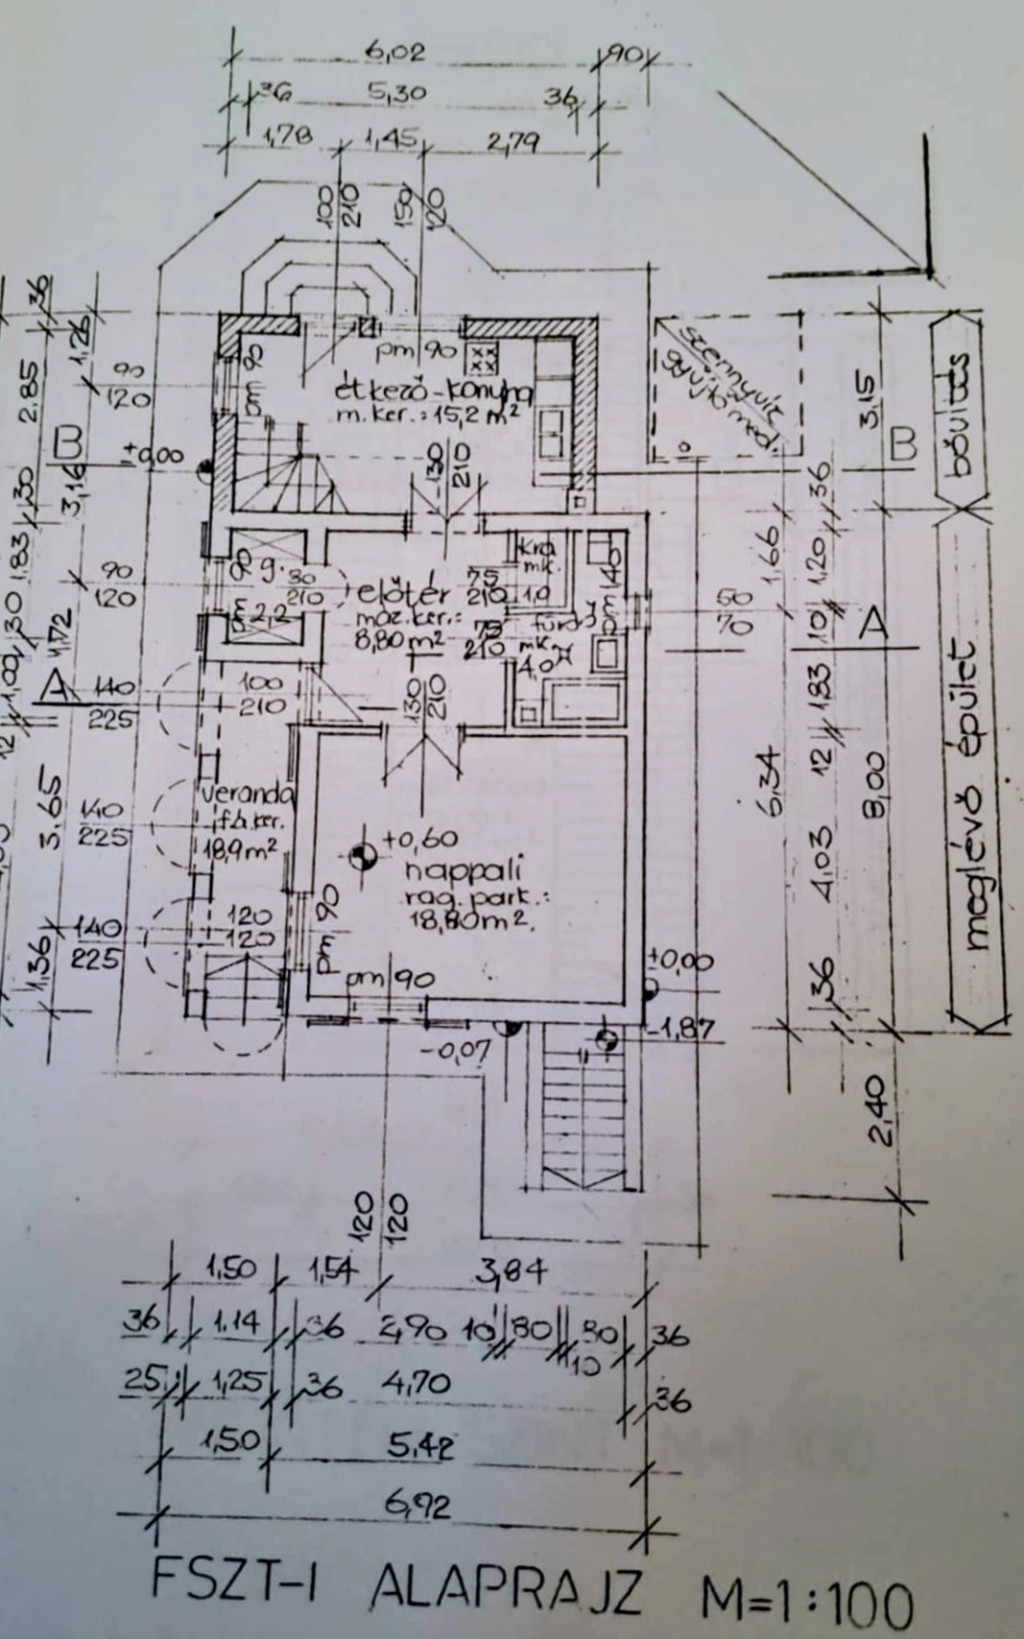 6,02
90
36
5,30
36
1,78
1,45
2,79
100
210
150
120
36
2.85
1,26
90
120
pm 90
pm 90
étkező-konyha
m. ker.: 15,2 m²
szennyvíz
3,15
bővítés
B
±0,00
B
130
210
3,16
30
1.83
30
1,00
1,72
90
120
g.
80
210
2,2
előtér
moz. ker.:
8,80 m²
75
210
75
210
mk.
1,0
fürdő
mk.
4,0
pm 140
60
70
1,66
36
1,20
10
A
1,83
A
140
225
100
210
130
210
12
12
6,34
8,00
meglévő épület
3.65
140
225
veranda
f.b. ker.
18,9 m²
+0,60
nappali
rag. park.:
18,80 m².
4.03
1,36
140
225
120
120
pm 90
pm 90
±0,00
36
-0,07
-1,87
2,40
120
120
1,50
1,54
3,84
36
1.14
36
2,90
10
80
80
10
36
25
1,25
36
4,70
36
1,50
5,42
6,92
FSZT-I ALAPRAJZ M=1:100